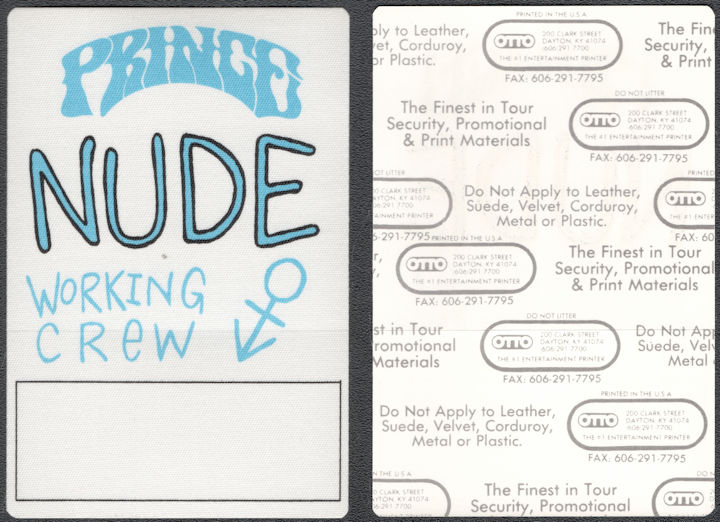 PRINCE
NUDE
WORKING
CREW
PRINTED IN THE U.S.A.
ply to Leather,
vet, Corduroy,
or Plastic.
OTTO
200 CLARK STREET
DAYTON, KY 41074
606-291-7700
THE #1 ENTERTAINMENT PRINTER
FAX: 606-291-7795
The Fin
Security,
& Print
The Finest in Tour
Security, Promotional
& Print Materials
DO NOT LITTER
OTTO
200 CLARK STREET
DAYTON, KY 41074
606-291-7700
THE #1 ENTERTAINMENT PRINTER
FAX: 606-291-7795
OT LITTER
CLARK STREET
AYTON, KY 41074
606-291-7700
AINMENT PRINTER
-291-7795
Do Not Apply to Leather,
Suede, Velvet, Corduroy,
Metal or Plastic.
PRINTED
OTTO
THE #1 ENTER
FAX: 60
r,
y,
PRINTED IN THE U.S.A.
OTTO
200 CLARK STREET
DAYTON, KY 41074
606-291-7700
THE #1 ENTERTAINMENT PRINTER
FAX: 606-291-7795
The Finest in Tour
Security, Promotional
& Print Materials
st in Tour
romotional
Materials
DO NOT LITTER
OTTO
200 CLARK STREET
DAYTON, KY 41074
606-291-7700
THE #1 ENTERTAINMENT PRINTER
FAX: 606-291-7795
Do Not App
Suede, Velv
Metal
Do Not Apply to Leather,
Suede, Velvet, Corduroy,
Metal or Plastic.
PRINTED IN THE U.S.A.
OTTO
200 CLARK STREET
DAYTON, KY 41074
606-291-7700
THE #1 ENTERTAINMENT PRINTER
FAX: 606-291-7795
N THE U.S.A.
CLARK STREET
YTON, KY 41074
606-291-7700
AINMENT PRINTER
The Finest in Tour
Security, Promotional
DO N
OTTO